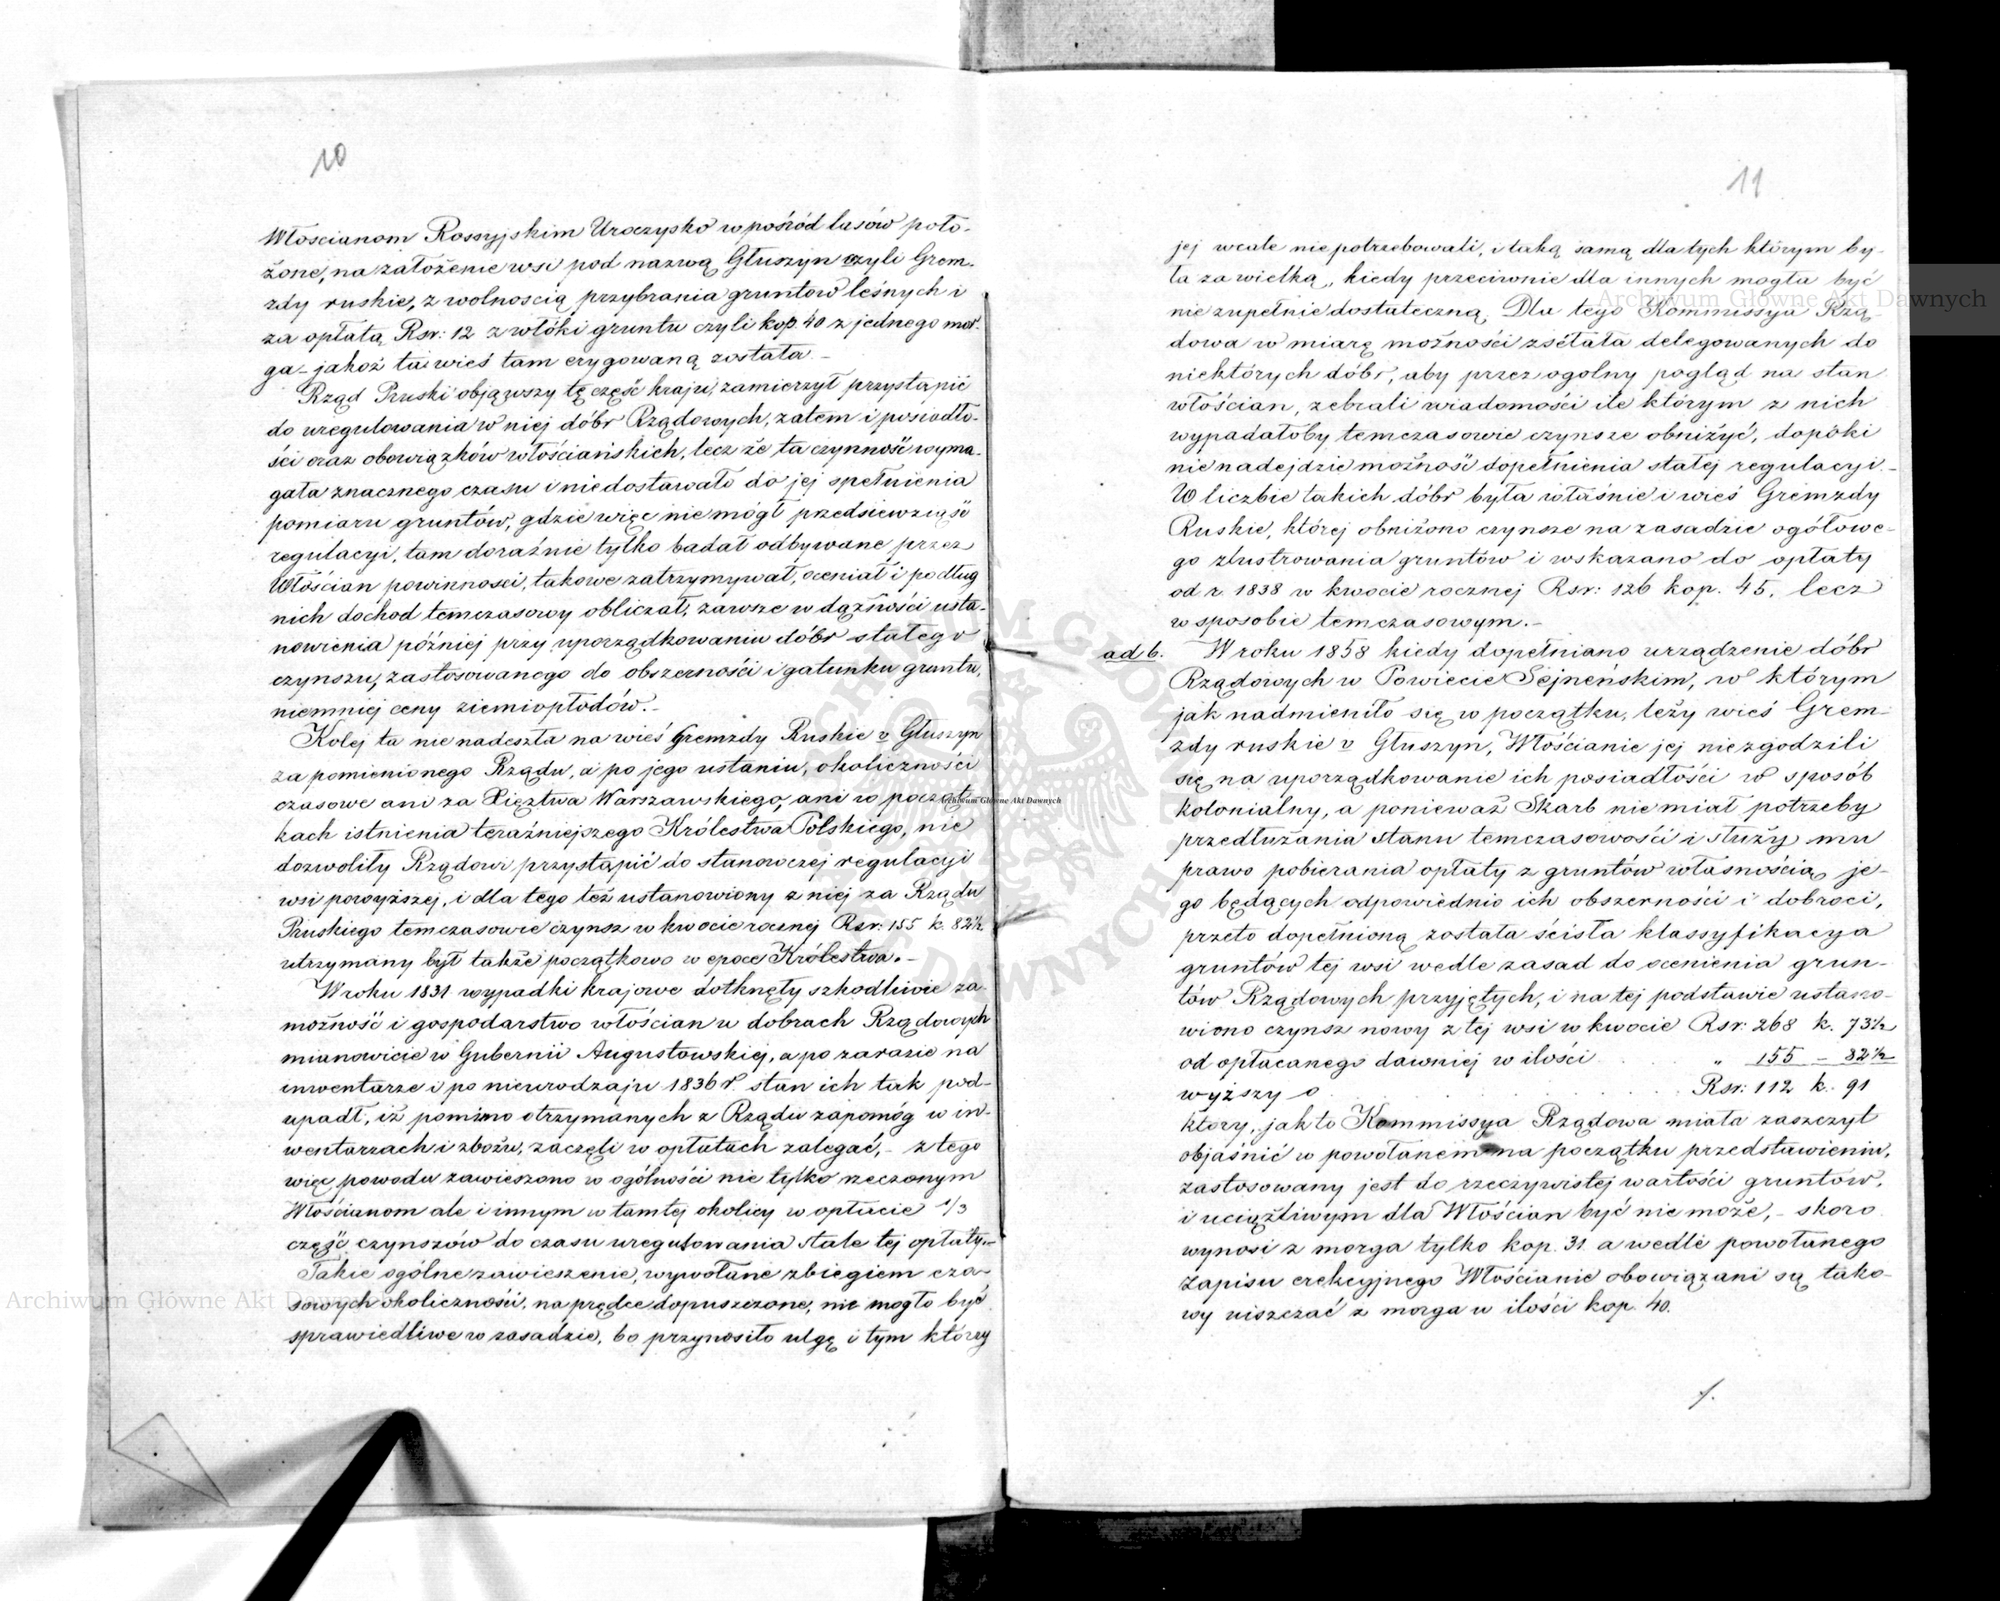 10
Włoscianom Rossyjskim Uroczysko wpośród lasów poło-
żone, na założenie wsi pod nazwą Głuszyn czyli Grem-
zdy ruskie, z wolnoscią przybrania gruntow leśnych i
za opłatą Rsr: 12 z włóki gruntu czyli kop. 40 z jednego mor-
ga - jakoż ta wieś tam erygowaną została -
Rząd Pruski objąwszy tę część kraju, zamierzył przystąpić
do uregulowania w niej dóbr Rządowych, zatem i posiadło-
ści oraz obowiązków włościańskich, lecz że ta czynność wyma-
gała znacznego czasu i niedostawało do jej spełnienia
pomiaru gruntów, gdzie więc nie mógł przedsiewziąść
regulacyi, tam doraźnie tylko badał odbywane przez
Włościan powinności, takowe zatrzymywał, oceniał i podług
nich dochod temczasowy obliczał, zawsze w dążności usta-
nowienia później przy uporządkowaniu dóbr stałego
czynszu, zastosowanego do obszerności i gatunku gruntu,
niemniej ceny ziemiopłodów. -
Kolej ta nie nadeszła na wieś Gremzdy Ruskie v Głuszyn
za pomienionego Rządu, a po jego ustaniu, okoliczności
czasowe ani za Xięztwa Warszawskiego, ani w począt-
kach istnienia teraźniejszego Królestwa Polskiego, nie
dozwoliły Rządowi przystąpić do stanowczej regulacyi
wsi powyższej, i dla tego też ustanowiony z niej za Rządu
Pruskiego temczasowie czynsz w kwocie rocznej Rsr: 155 k. 82½
utrzymany był także początkowo w epoce Królestwa. -
W roku 1831 wypadki krajowe dotknęły szkodliwie za-
możność i gospodarstwo włościan w dobrach Rządowych
mianowicie w Gubernii Augustowskiej, a po zarazie na
inwentarze i po nieurodzaju 1836 r. stan ich tak pod-
upadł, iż pomimo otrzymanych z Rządu zapomóg w in-
wentarzach i zbożu, zaczęli w opłatach zalegać, - z tego
więc powodu zawieszono w ogólności nie tylko rzeczonym
Włościanom ale i innym w tamtej okolicy w opłacie 1/3
część czynszów do czasu uregulowania stałe tej opłaty. -
Takie ogólne zawieszenie, wywołane zbiegiem cza-
sowych okoliczności, na prędce dopuszczone, nie mogło być
sprawiedliwe w zasadzie, bo przynosiło ulgę i tym którzy
11
jej wcale niepotrzebowali, i taką samą dla tych którym by-
ła za wielką, kiedy przeciwnie dla innych mogła być
nie zupełnie dostateczną. Dla tego Kommissya Rzą-
dowa w miarę możności zsełała delegowanych do
niektórych dóbr, aby przez ogolny pogląd na stan
włościan, zebrali wiadomości ile którym z nich
wypadałoby temczasowie czynsze obniżyć, dopóki
nie nadejdzie możność dopełnienia stałej regulacyi. -
W liczbie takich dóbr była właśnie i wieś Gremzdy
Ruskie, której obniżono czynsze na zasadzie ogółowe-
go zlustrowania gruntów i wskazano do opłaty
od r. 1838 w kwocie rocznej Rsr: 126 kop. 45, lecz
w sposobie temczasowym. -
ad b. W roku 1858 kiedy dopełniano urządzenie dóbr
Rządowych w Powiecie Sejneńskim, w którym
jak nadmieniło się w początku, leży wieś Grem-
zdy ruskie v Głuszyn, Włościanie jej niezgodzili
się na uporządkowanie ich posiadłości w sposób
kolonialny, a ponieważ Skarb nie miał potrzeby
przedłużania stanu temczasowości i służy mu
prawo pobierania opłaty z gruntów własnością je-
go będących odpowiednio ich obszerności i dobroci,
przeto dopełnioną została ścisła klassyfikacya
gruntów tej wsi wedle zasad do ocenienia grun-
tów Rządowych przyjętych, i na tej podstawie ustano-
wiono czynsz nowy z tej wsi w kwocie Rsr: 268 k. 73½
od opłacanego dawniej w ilości " 155 - 82½
wyższy o Rsr: 112 k. 91
ktory, jak to Kommissya Rządowa miała zaszczyt
objaśnić w powołanem na początku przedstawieniu,
zastosowany jest do rzeczywistej wartości gruntów,
i uciążliwym dla Włościan być nie może, - skoro
wynosi z morga tylko kop. 31 a wedle powołanego
Zapisu erekcyjnego Włościanie obowiązani są tako-
wy uiszczać z morga w ilości kop. 40.
Archiwum Główne Akt Dawnych
Archiwum Główne Akt Dawnych
Archiwum Główne Akt Dawnych